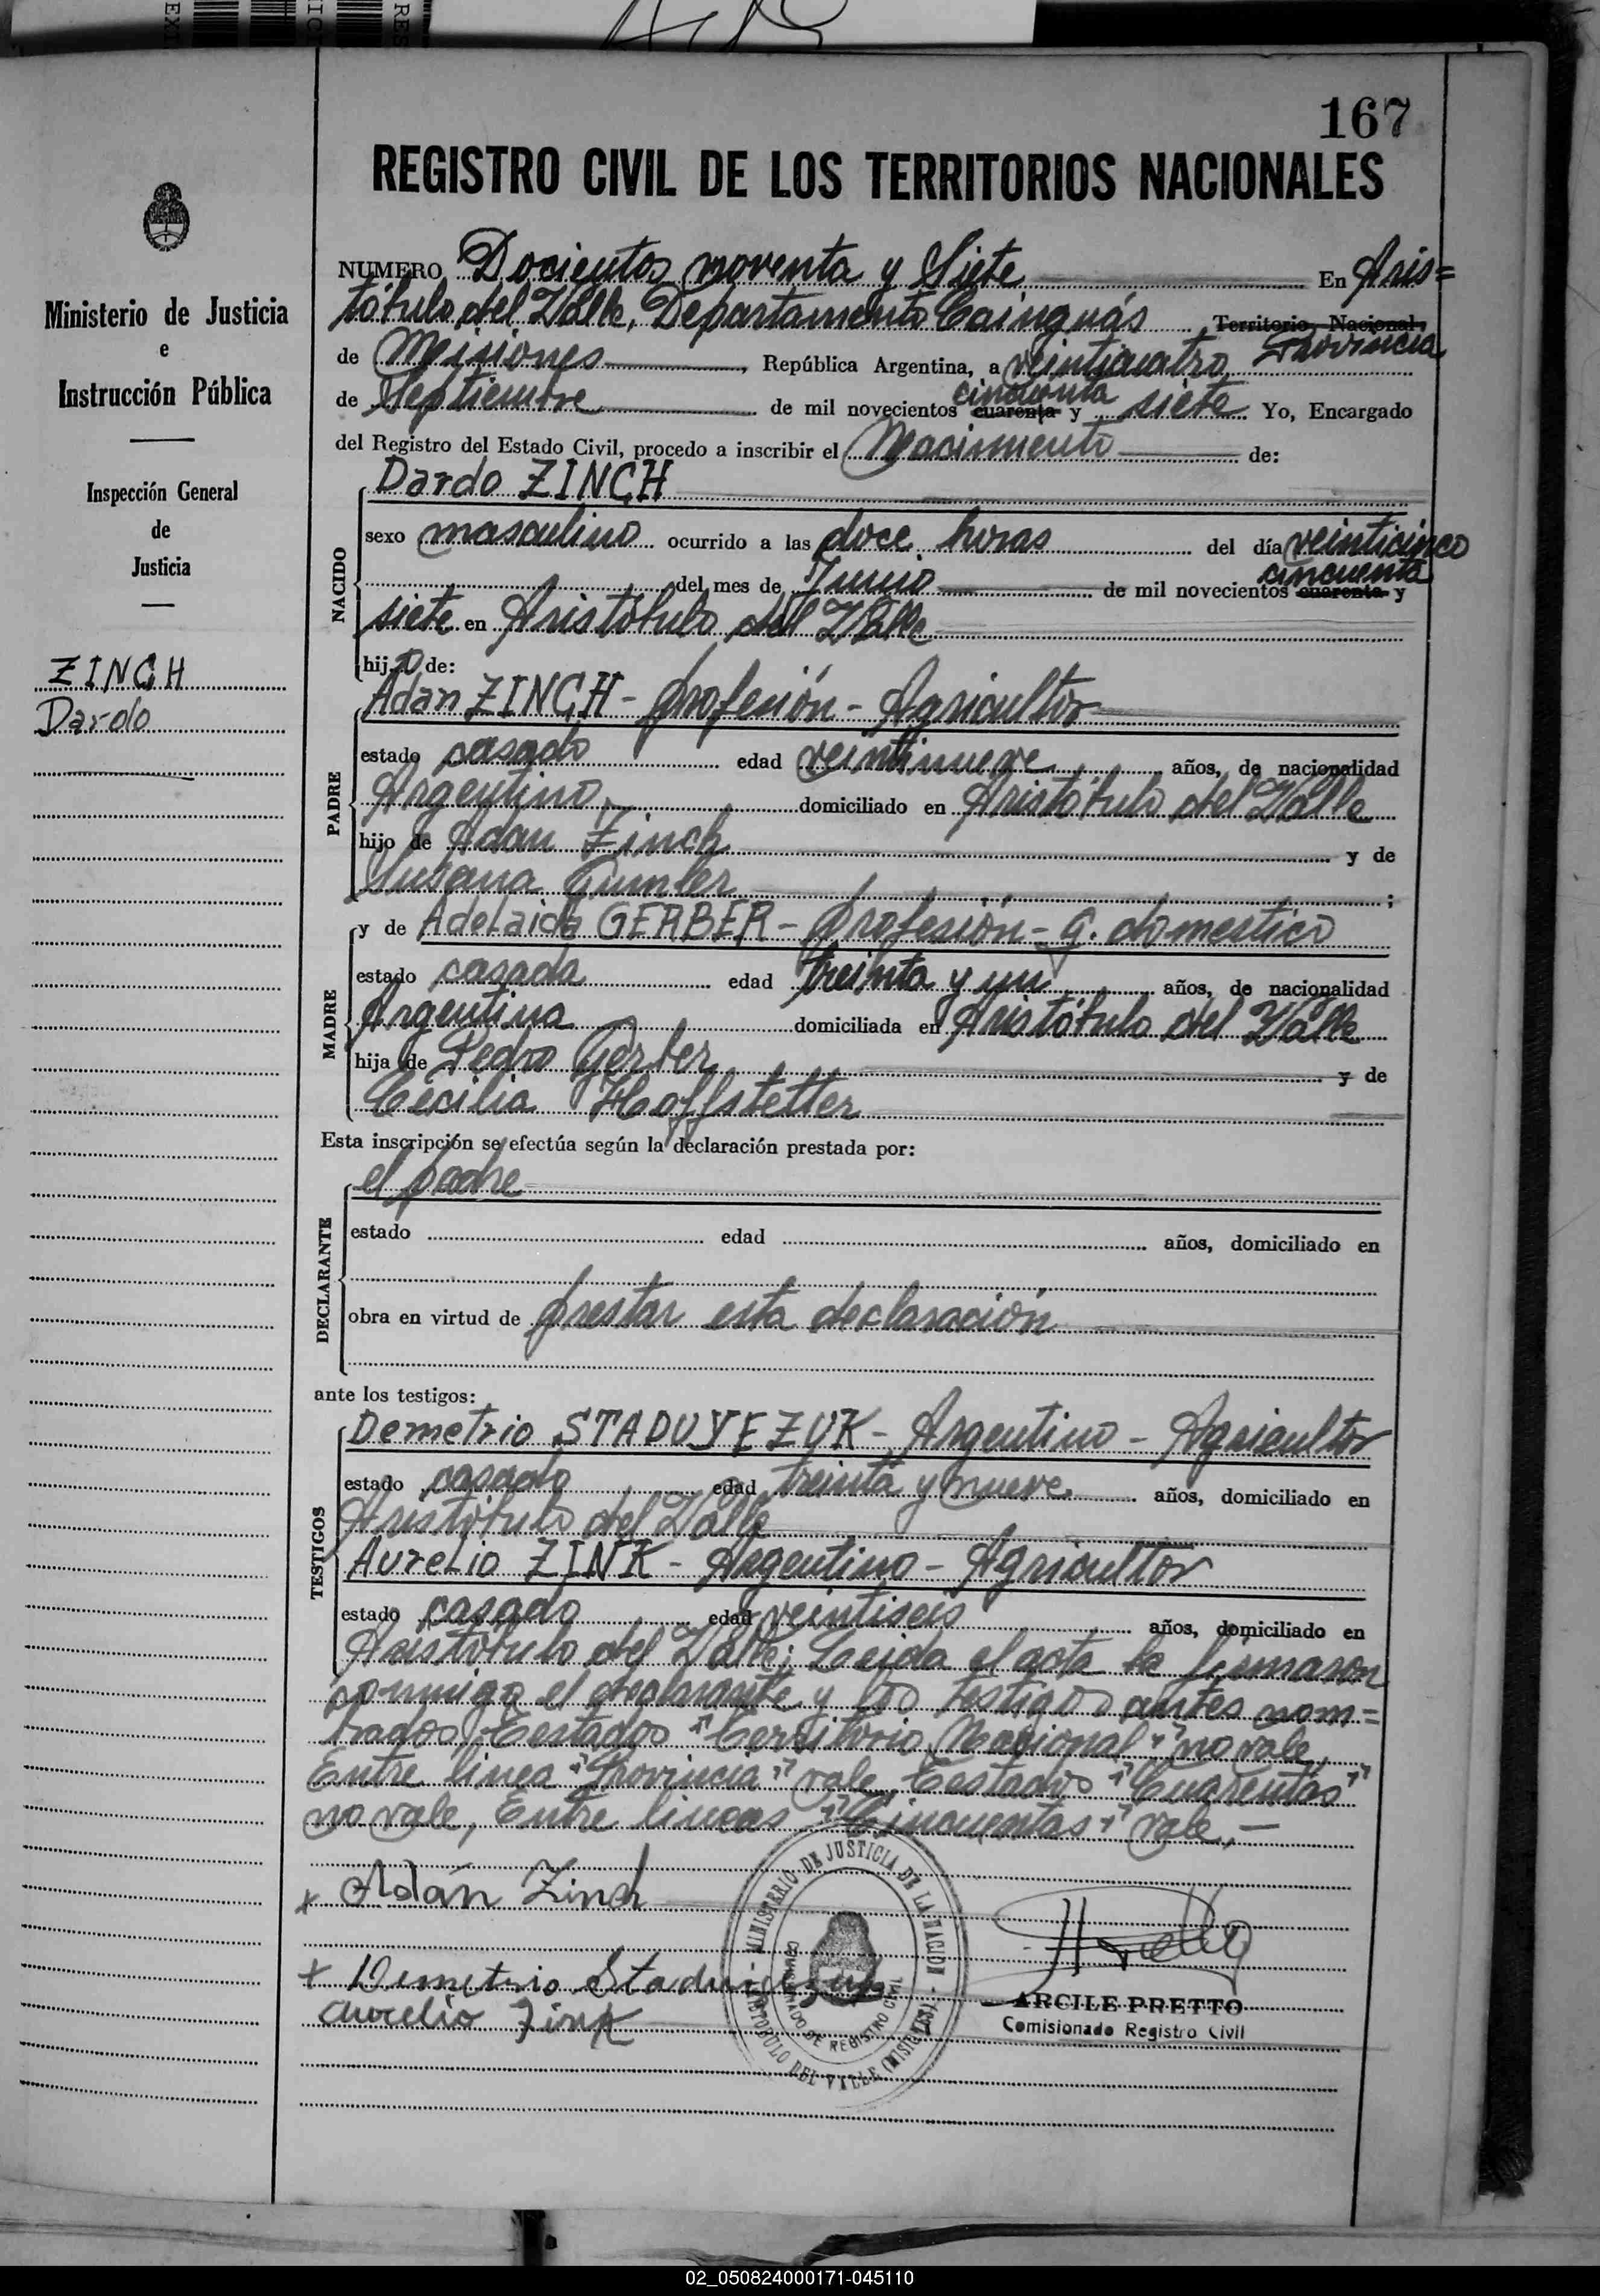 167
REGISTRO CIVIL DE LOS TERRITORIOS NACIONALES
Ministerio de Justicia
e
Instrucción Pública
Inspección General
de
Justicia
ZINCH
Dardo
NUMERO Docientos noventa y Siete En Aris=
tóbulo del Valle, Departamento Cainguás Territorio Nacional,
Provincia
de Misiones, República Argentina, a veinticuatro
cincuenta
de Septiembre de mil novecientos cuarenta y siete Yo, Encargado
del Registro del Estado Civil, procedo a inscribir el Nacimiento de:
NACIDO
Dardo ZINCH
sexo masculino ocurrido a las doce horas del día veinticinco
cincuenta
del mes de Junio de mil novecientos cuarenta y
siete en Aristóbulo del Valle
hijo de:
PADRE
Adan ZINCH - profesión - Agricultor
estado casado edad veintinueve años, de nacionalidad
Argentino domiciliado en Aristóbulo del Valle
hijo de Adan Zinch y de
Susana ;
MADRE
y de Adelaida GERBER - profesión - q. domestico
estado casada edad treinta y un años, de nacionalidad
Argentina domiciliada en Aristóbulo del Valle
hija de Pedro Gerber y de
Cecilia Hoffstetter
Esta inscripción se efectúa según la declaración prestada por:
DECLARANTE
el padre
estado edad años, domiciliado en
obra en virtud de prestar esta declaración
ante los testigos:
TESTIGOS
Demetrio STADUYEZUK - Argentino - Agricultor
estado casado edad treinta y nueve años, domiciliado en
Aristóbulo del Valle
Aurelio ZINK - Argentino - Agricultor
estado casado edad veintiseis años, domiciliado en
Aristóbulo del Valle; Leida el acta la firmaron
conmigo el declarante y los testigos antes nom=
brados, Testados "Territorio Nacional" no vale,
Entre linea "Provincia" vale, Testados "Cuarentas"
no vale, Entre lineas "Cincuentas" vale,-
x Adán Zinch
x Demetrio
Aurelio Zink
MINISTERIO DE JUSTICIA DE LA NACION
COMISIONADO DE REGISTRO CIVIL
ARISTOBULO DEL VALLE (MISIONES)
ARCILE PRETTO
Comisionado Registro Civil
02_050824000171-045110